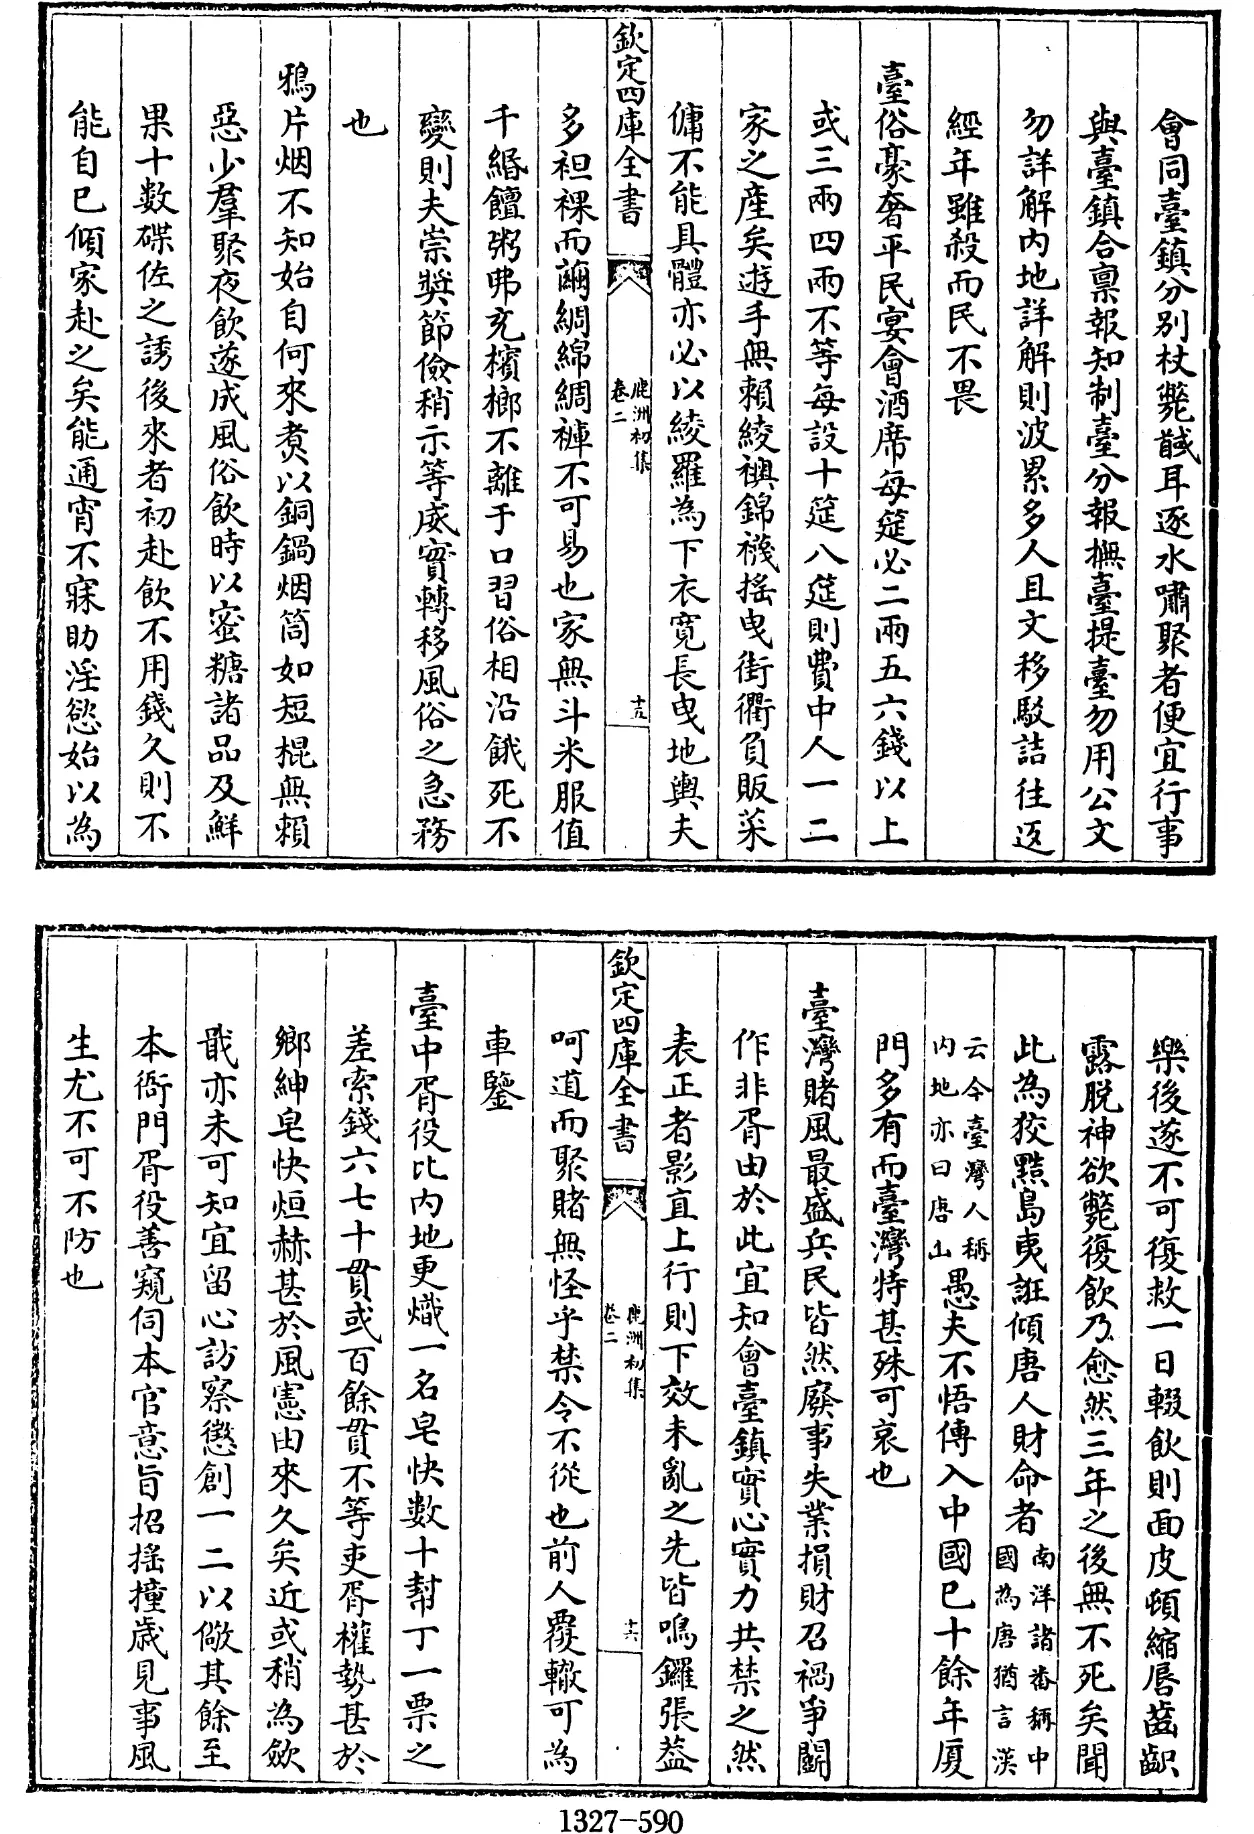 會同臺鎮分别杖斃馘耳逐水嘯聚者便宜行事
與臺鎮合禀報知制臺分報撫臺提臺勿用公文
勿詳解内地詳解則波累多人且文移駁詰往返
經年雖殺而民不畏
臺俗豪奢平民宴會酒席每筵必二兩五六錢以上
或三兩四兩不等每設十筵八筵則費中人一二
家之産矣遊手無賴綾襖錦襪揺曳街衢負販菜
傭不能具體亦必以綾羅為下衣寛長曳地輿夫
欽定四庫全書
鹿洲初集
卷二
十五
多袒裸而繭綢綿綢褲不可易也家無斗米服值
千緡饘粥弗充檳榔不離于口習俗相沿餓死不
變則夫崇奬節儉稍示等威實轉移風俗之急務
也
鴉片烟不知始自何來煑以銅鍋烟筒如短棍無賴
惡少羣聚夜飲遂成風俗飲時以蜜糖諸品及鮮
果十數碟佐之誘後來者初赴飲不用錢久則不
能自已傾家赴之矣能通宵不寐助淫慾始以為
樂後遂不可復救一日輟飲則面皮頓縮唇齒齞
露脱神欲斃復飲乃愈然三年之後無不死矣聞
此為狡黠島夷誑傾唐人財命者
南洋諸番稱中
國為唐猶言漢
云今臺灣人稱
内地亦曰唐山
愚夫不悟傳入中國已十餘年厦
門多有而臺灣特甚殊可哀也
臺灣賭風最盛兵民皆然廢事失業損財召禍爭鬭
作非胥由於此宜知會臺鎮實心實力共禁之然
表正者影直上行則下效未亂之先皆鳴鑼張葢
欽定四庫全書
鹿洲初集
卷二
十六
呵道而聚賭無怪乎禁令不從也前人覆轍可為
車鑒
臺中胥役比内地更熾一名皂快數十幇丁一票之
差索錢六七十貫或百餘貫不等吏胥權勢甚於
鄉紳皂快烜赫甚於風憲由來久矣近或稍為歛
戢亦未可知宜留心訪察懲創一二以儆其餘至
本衙門胥役善窺伺本官意旨招揺撞歳見事風
生尤不可不防也
1327-590